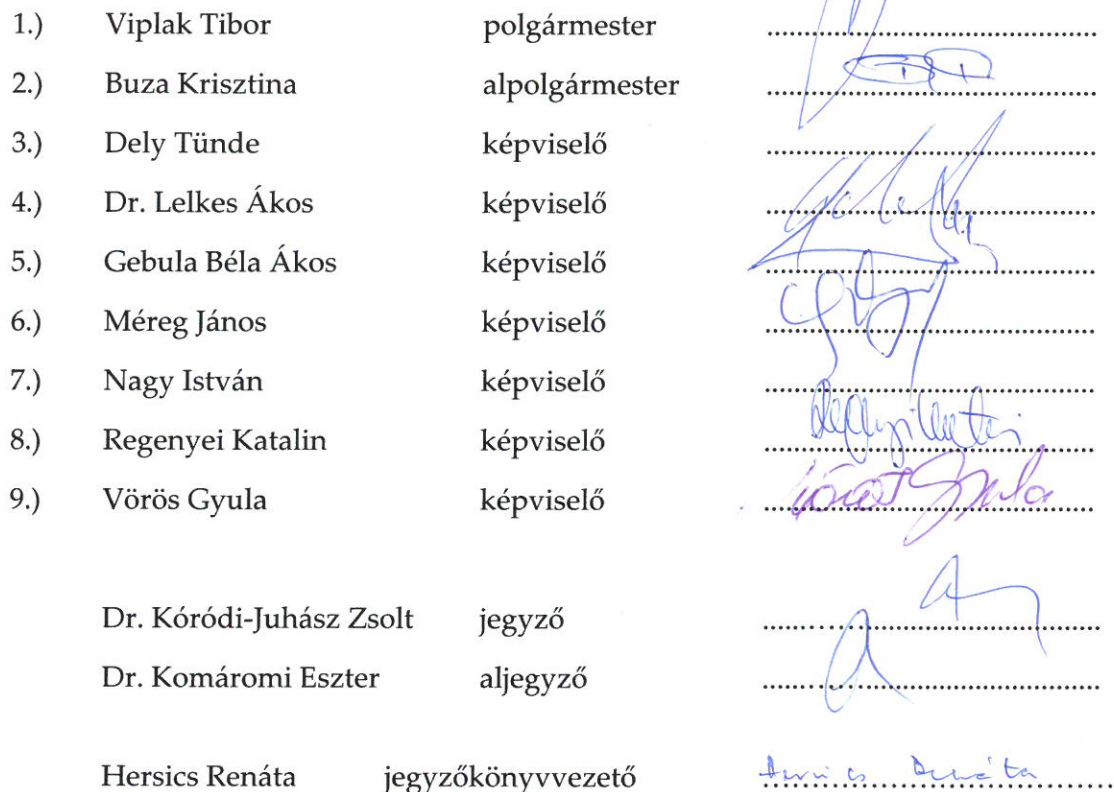 1.) Viplak Tibor polgármester ........................................
2.) Buza Krisztina alpolgármester ........................................
3.) Dely Tünde képviselő ........................................
4.) Dr. Lelkes Ákos képviselő ........................................
5.) Gebula Béla Ákos képviselő ........................................
6.) Méreg János képviselő ........................................
7.) Nagy István képviselő ........................................
8.) Regenyei Katalin képviselő ........................................
9.) Vörös Gyula képviselő Vörös Gyula
Dr. Kóródi-Juhász Zsolt jegyző ........................................
Dr. Komáromi Eszter aljegyző ........................................
Hersics Renáta jegyzőkönyvvezető Hersics Renáta